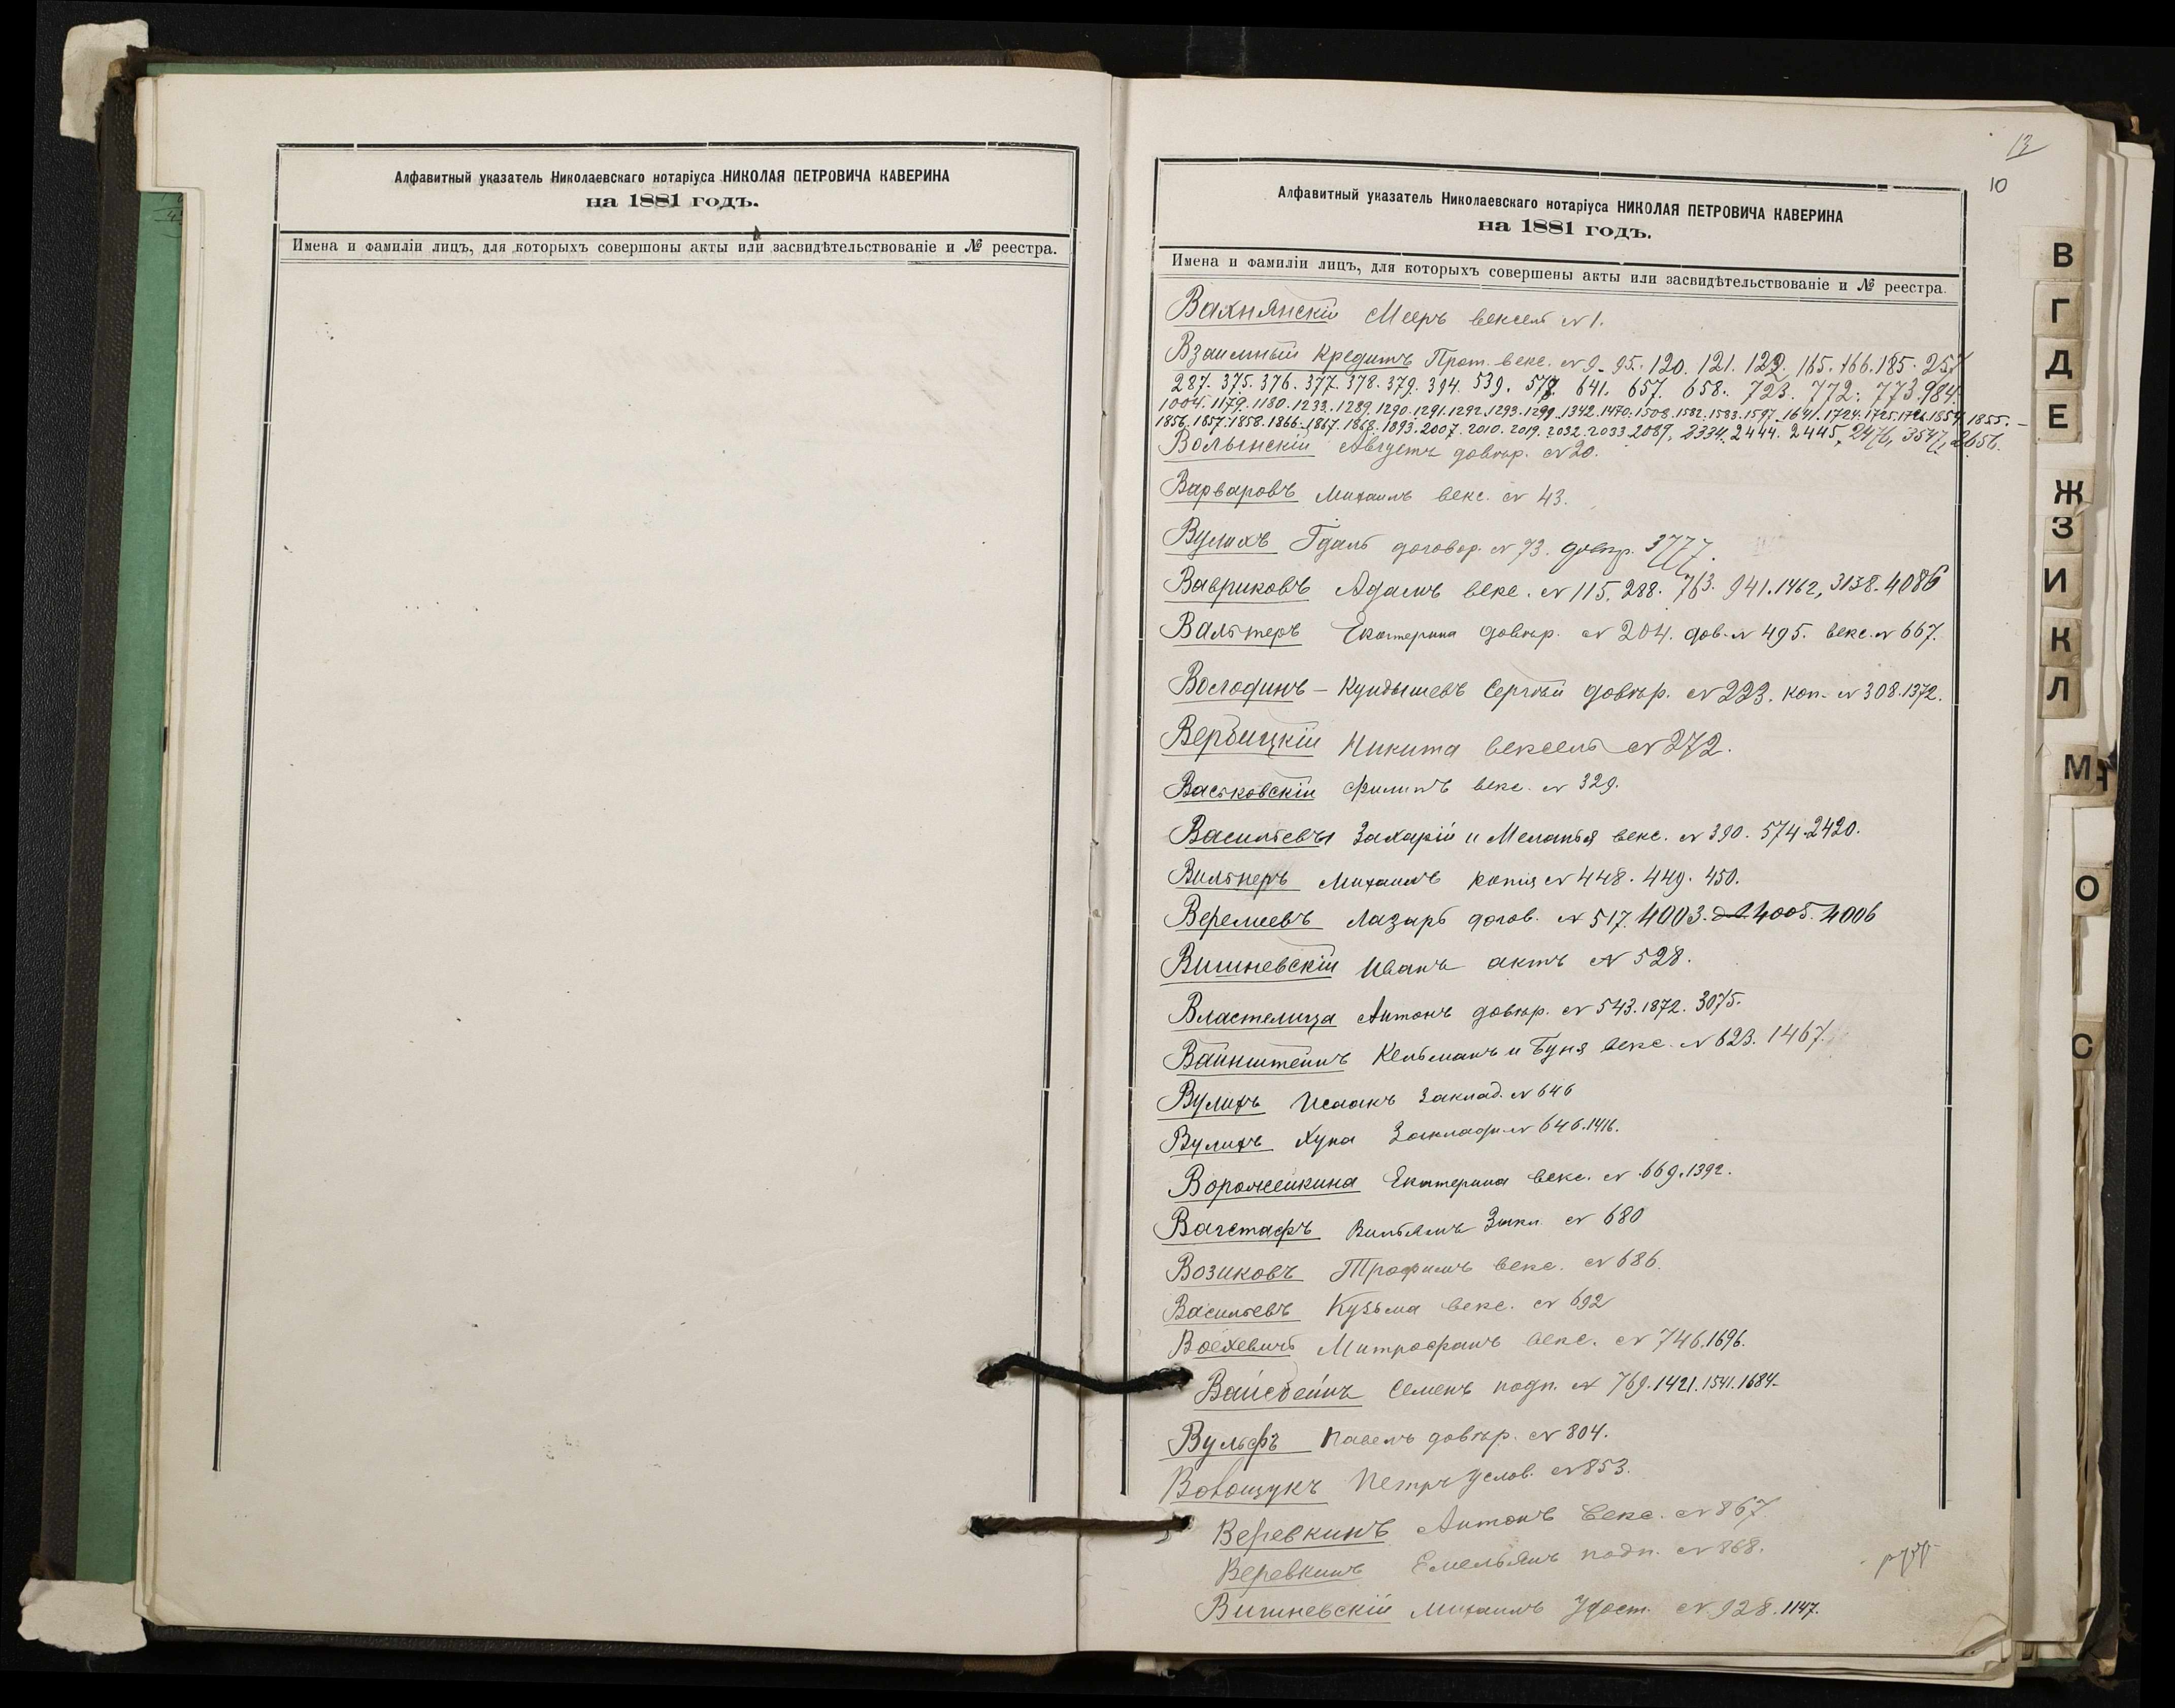 Алфавитный указатель Николаевскаго нотаріуса НИКОЛАЯ ПЕТРОВИЧА КАВЕРИНА
на 1881 годъ.
Имена и фамиліи лицъ, для которыхъ совершоны акты или засвидѣтельствованіе и № реестра.
13
10
Алфавитный указатель Николаевскаго нотаріуса НИКОЛАЯ ПЕТРОВИЧА КАВЕРИНА
на 1881 годъ.
Имена и фамиліи лицъ, для которыхъ совершены акты или засвидѣтельствованіе и № реестра.
Вахнянскій Мееръ вексель № 1.
Взаимный Кредитъ Прот. векс. № 9. 95. 120. 121. 123. 165. 166. 185. 257
287. 375. 376. 377. 378. 379. 394. 539. 577. 641. 657. 658. 723. 772. 773. 984.
1004. 1179. 1180. 1233. 1289. 1290. 1291. 1292. 1293. 1299. 1342. 1470. 1508. 1582. 1583. 1597. 1641. 1724. 1725. 1726. 1854. 1855.
1856. 1857. 1858. 1866. 1867. 1868. 1893. 2007. 2010. 2019. 2032. 2033. 2089, 2334. 2444. 2445, 2476, 3547, 2656.
Волынскій Августъ довѣр. № 20.
Варваровъ Михаилъ векс. № 43.
Вулихъ Гдаль договор. № 73. довѣр. 3777.
Вавриковъ Адамъ векс. № 115. 288. 763. 941. 1462, 3138. 4086
Вальтеръ Екатерина довѣр. № 204. дов. № 495. векс. № 667.
Володинъ - Кундышевъ Сергѣй довѣр. № 223. коп. № 308. 1372.
Вербицкій Никита вексель № 272.
Васьковскій Филипъ векс. № 329.
Васильевы Захарій и Меланья векс. № 390. 574. 2420.
Вильнеръ Михаилъ копія № 448. 449. 450.
Веремеевъ Лазарь догов. № 517. 4003. 4005. 4006
Вишневскій Иванъ актъ № 528.
Властелица Антонъ довѣр. № 543. 1872. 3075.
Вайнштейнъ Кельманъ и Буня векс. № 623. 1467.
Вулихъ Исаакъ Заклад. № 646
Вулихъ Хуна Закладн № 646. 1416.
Ворожейкина Екатерина векс. № 669. 1392.
Вагстафъ Вильямъ Закл. № 680
Возиковъ Трофимъ векс. № 686.
Васильевъ Кузьма векс. № 692
Воехевичъ Митрофанъ векс. № 746. 1696.
Вайсбейнъ Семенъ подп. № 769. 1421. 1541. 1684.
Вульфъ Павелъ довѣр. № 804.
Вовощукъ Петръ Услов. № 853.
Веревкинъ Антонъ Векс. № 867
Веревкинъ Емельянъ подп. № 868.
Вишневскій Михаилъ Удост. № 928. 1147.
В
Г
Д
Е
Ж
З
И
К
Л
М
О
С